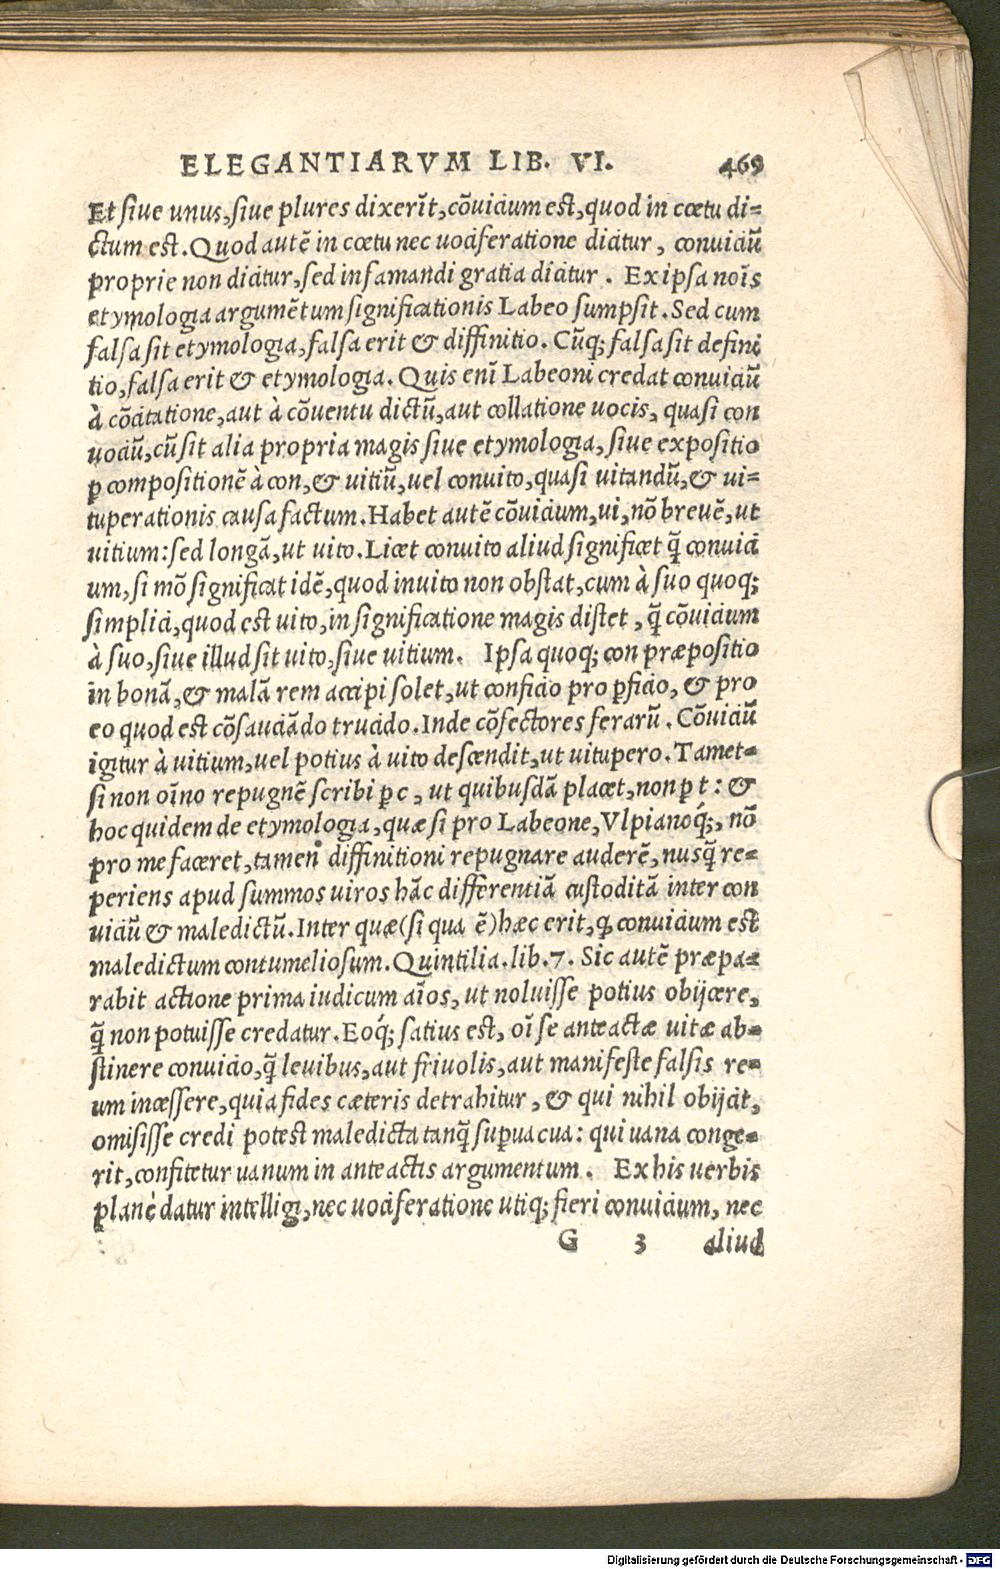 ELEGANTIARVM LIB. VI. 469
Et siue unus, siue plures dixerīt, cōuicium est, quod in cœtu di=
ctum est. Quod autē in cœtu nec uociferatione dicitur, conuiciū
proprie non dicitur, sed infamandi gratia dicitur. Ex ipsa noīs
etymologia argumētum significationis Labeo sumpsit. Sed cum
falsa sit etymologia, falsa erit & diffinitio. Cūq; falsa sit defini
tio, falsa erit & etymologia. Quis enī Labeoni credat conuiciū
à cōcitatione, aut à cōuentu dictū, aut collatione uocis, quasi con
uociū, cū sit alia propria magis siue etymologia, siue expositio
ꝑ compositionē à con, & uitiū, uel conuito, quasi uitandū, & ui=
tuperationis causa factum. Habet autē cōuicium, ui, nō breuē, ut
uitium: sed longā, ut uito. Licet conuito aliud significet q̃ conuici
um, si mō significat idē, quod inuito non obstat, cum à suo quoq;
simplici, quod est uito, in significatione magis distet, q̃ cōuicium
à suo, siue illud sit uito, siue uitium. Ipsa quoq; con præpositio
in bonā, & malā rem accipi solet, ut conficio pro ꝑficio, & pro
eo quod est cōsauciādo trucido. Inde cōfectores ferarū. Cōuiciū
igitur à uitium, uel potius à uito descendit, ut uitupero. Tamet=
si non oīno repugnē scribi ꝑ c, ut quibusdā placet, non ꝑ t: &
hoc quidem de etymologia, quæ si pro Labeone, Vlpianoq́;, nō
pro me faceret, tamen diffinitioni repugnare auderē, nusq̃ re=
periens apud summos uiros hāc differentiā custoditā inter con
uiciū & maledictū. Inter quæ (si qua ē) hæc erit, ꝙ conuicium est
maledictum contumeliosum. Quintilia. lib. 7. Sic autē præpa=
rabit actione prima iudicum aīos, ut noluisse potius obijcere,
q̃ non potuisse credatur. Eoq́; satius est, oī se anteactæ uitæ ab=
stinere conuicio, q̃ leuibus, aut friuolis, aut manifeste falsis re=
um incessere, quia fides cæteris detrahitur, & qui nihil obijcit,
omisisse credi potest maledicta tanq̃ suꝑuacua: qui uana conge=
rit, confitetur uanum in anteactis argumentum. Ex his uerbis
planè datur intelligi, nec uociferatione utiq; fieri conuicium, nec
G 3 aliud
Digitalisierung gefördert durch die Deutsche Forschungsgemeinschaft - DFG